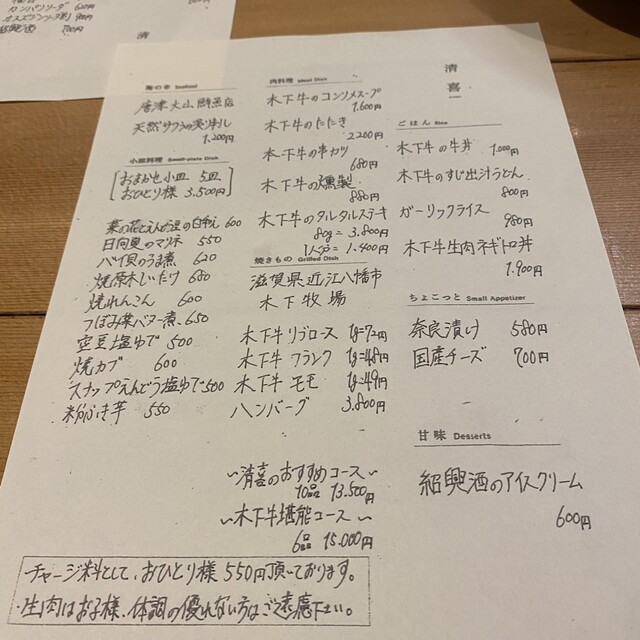 カンパリソーダ 620円
700円
清
海の幸 Seafood
唐津 大山鮮魚店
1.200円
小皿料理 Small-plate Dish
おまかせ小皿 5皿
おひとり様 3.500円
菜の花とえんどう豆の白和え 600
日向夏のマリネ 550
バイ貝のうま煮 620
焼原木しいたけ 680
焼れんこん 600
つぼみ菜バター煮 650
空豆塩ゆで 500
焼カブ 600
スナップえんどう塩ゆで 500
粉ふき芋 550
肉料理 Meat Dish
木下牛のコンソメスープ
1.600円
木下牛のたたき
2.200円
木下牛の串カツ
680円
木下牛の燻製
880円
木下牛のタルタルステーキ
80g = 3.800円
ハーフ = 1.400円
焼きもの Grilled Dish
滋賀県近江八幡市
木下牧場
木下牛リブロース 1g=72円
木下牛フランク 1g=48円
木下牛モモ 1g=49円
ハンバーグ 3.800円
清喜
ごはん Rice
木下牛の牛丼 1.000円
木下牛のすじ出汁うどん
800円
ガーリックライス
980円
木下牛生肉ネギトロ丼
1.900円
ちょこっと Small Appetizer
奈良漬け 580円
国産チーズ 700円
甘味 Desserts
紹興酒のアイスクリーム
600円
〜清喜のおすすめコース〜
10品 13.500円
〜木下牛堪能コース〜
6品 15.000円
チャージ料として、おひとり様550円頂いております。
・生肉はお子様、体調の優れない方はご遠慮下さい。